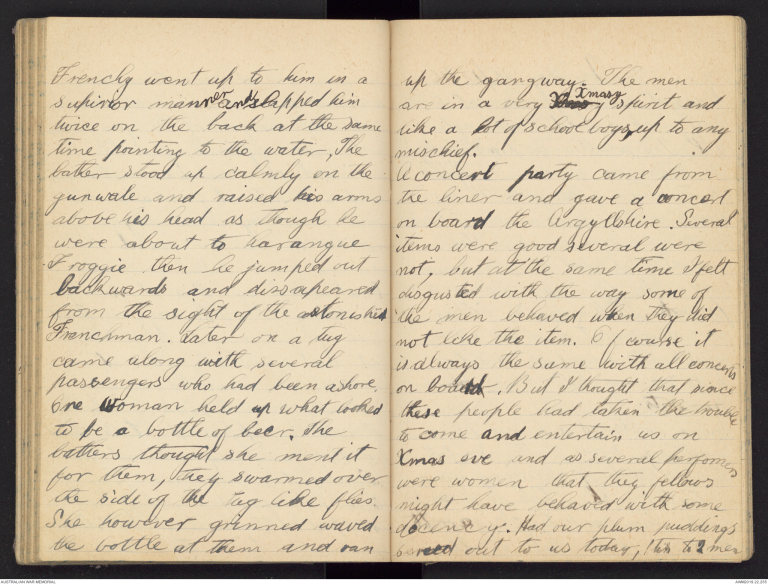 Frenchy went up to him in a
superior manner and slapped him
twice on the back at the same
time pointing to the water, The
bather stood up calmly on the
gunwale and raised his arms
above his head as though he
were about to harangue
Froggie then he jumped out
backwards and dissapeared
from the sight of the astonished
Franchman. Later on a tug
came along with several
passengers who had been ashore.
One woman held up what looked
to be a bottle of beer. The
bathers thought she ment it
for them, they swarmed over
the side of the tug like flies.
She however grinned waved
the bottle at them and ran
up the gangway. The men
are in a very Xmasy spirit and
like a lot of school boys, up to any
mischief.
A concert party came from
the liner and gave a concert
on board the Argyllshire. Several
items were good several were
not, but at the same time I felt
disgusted with the way some of
the men behaved when they did
not like the item. Of course it
is always the same with all concerts
on board. But I thought that since
these people had taken the trouble
to come and entertain us on
Xmas eve and as several perfomers
were women that they fellows
might have behaved with some
decency. Had our plum puddings
served out to us today, 1 tin to 2 men
AUSTRALIAN WAR MEMORIAL